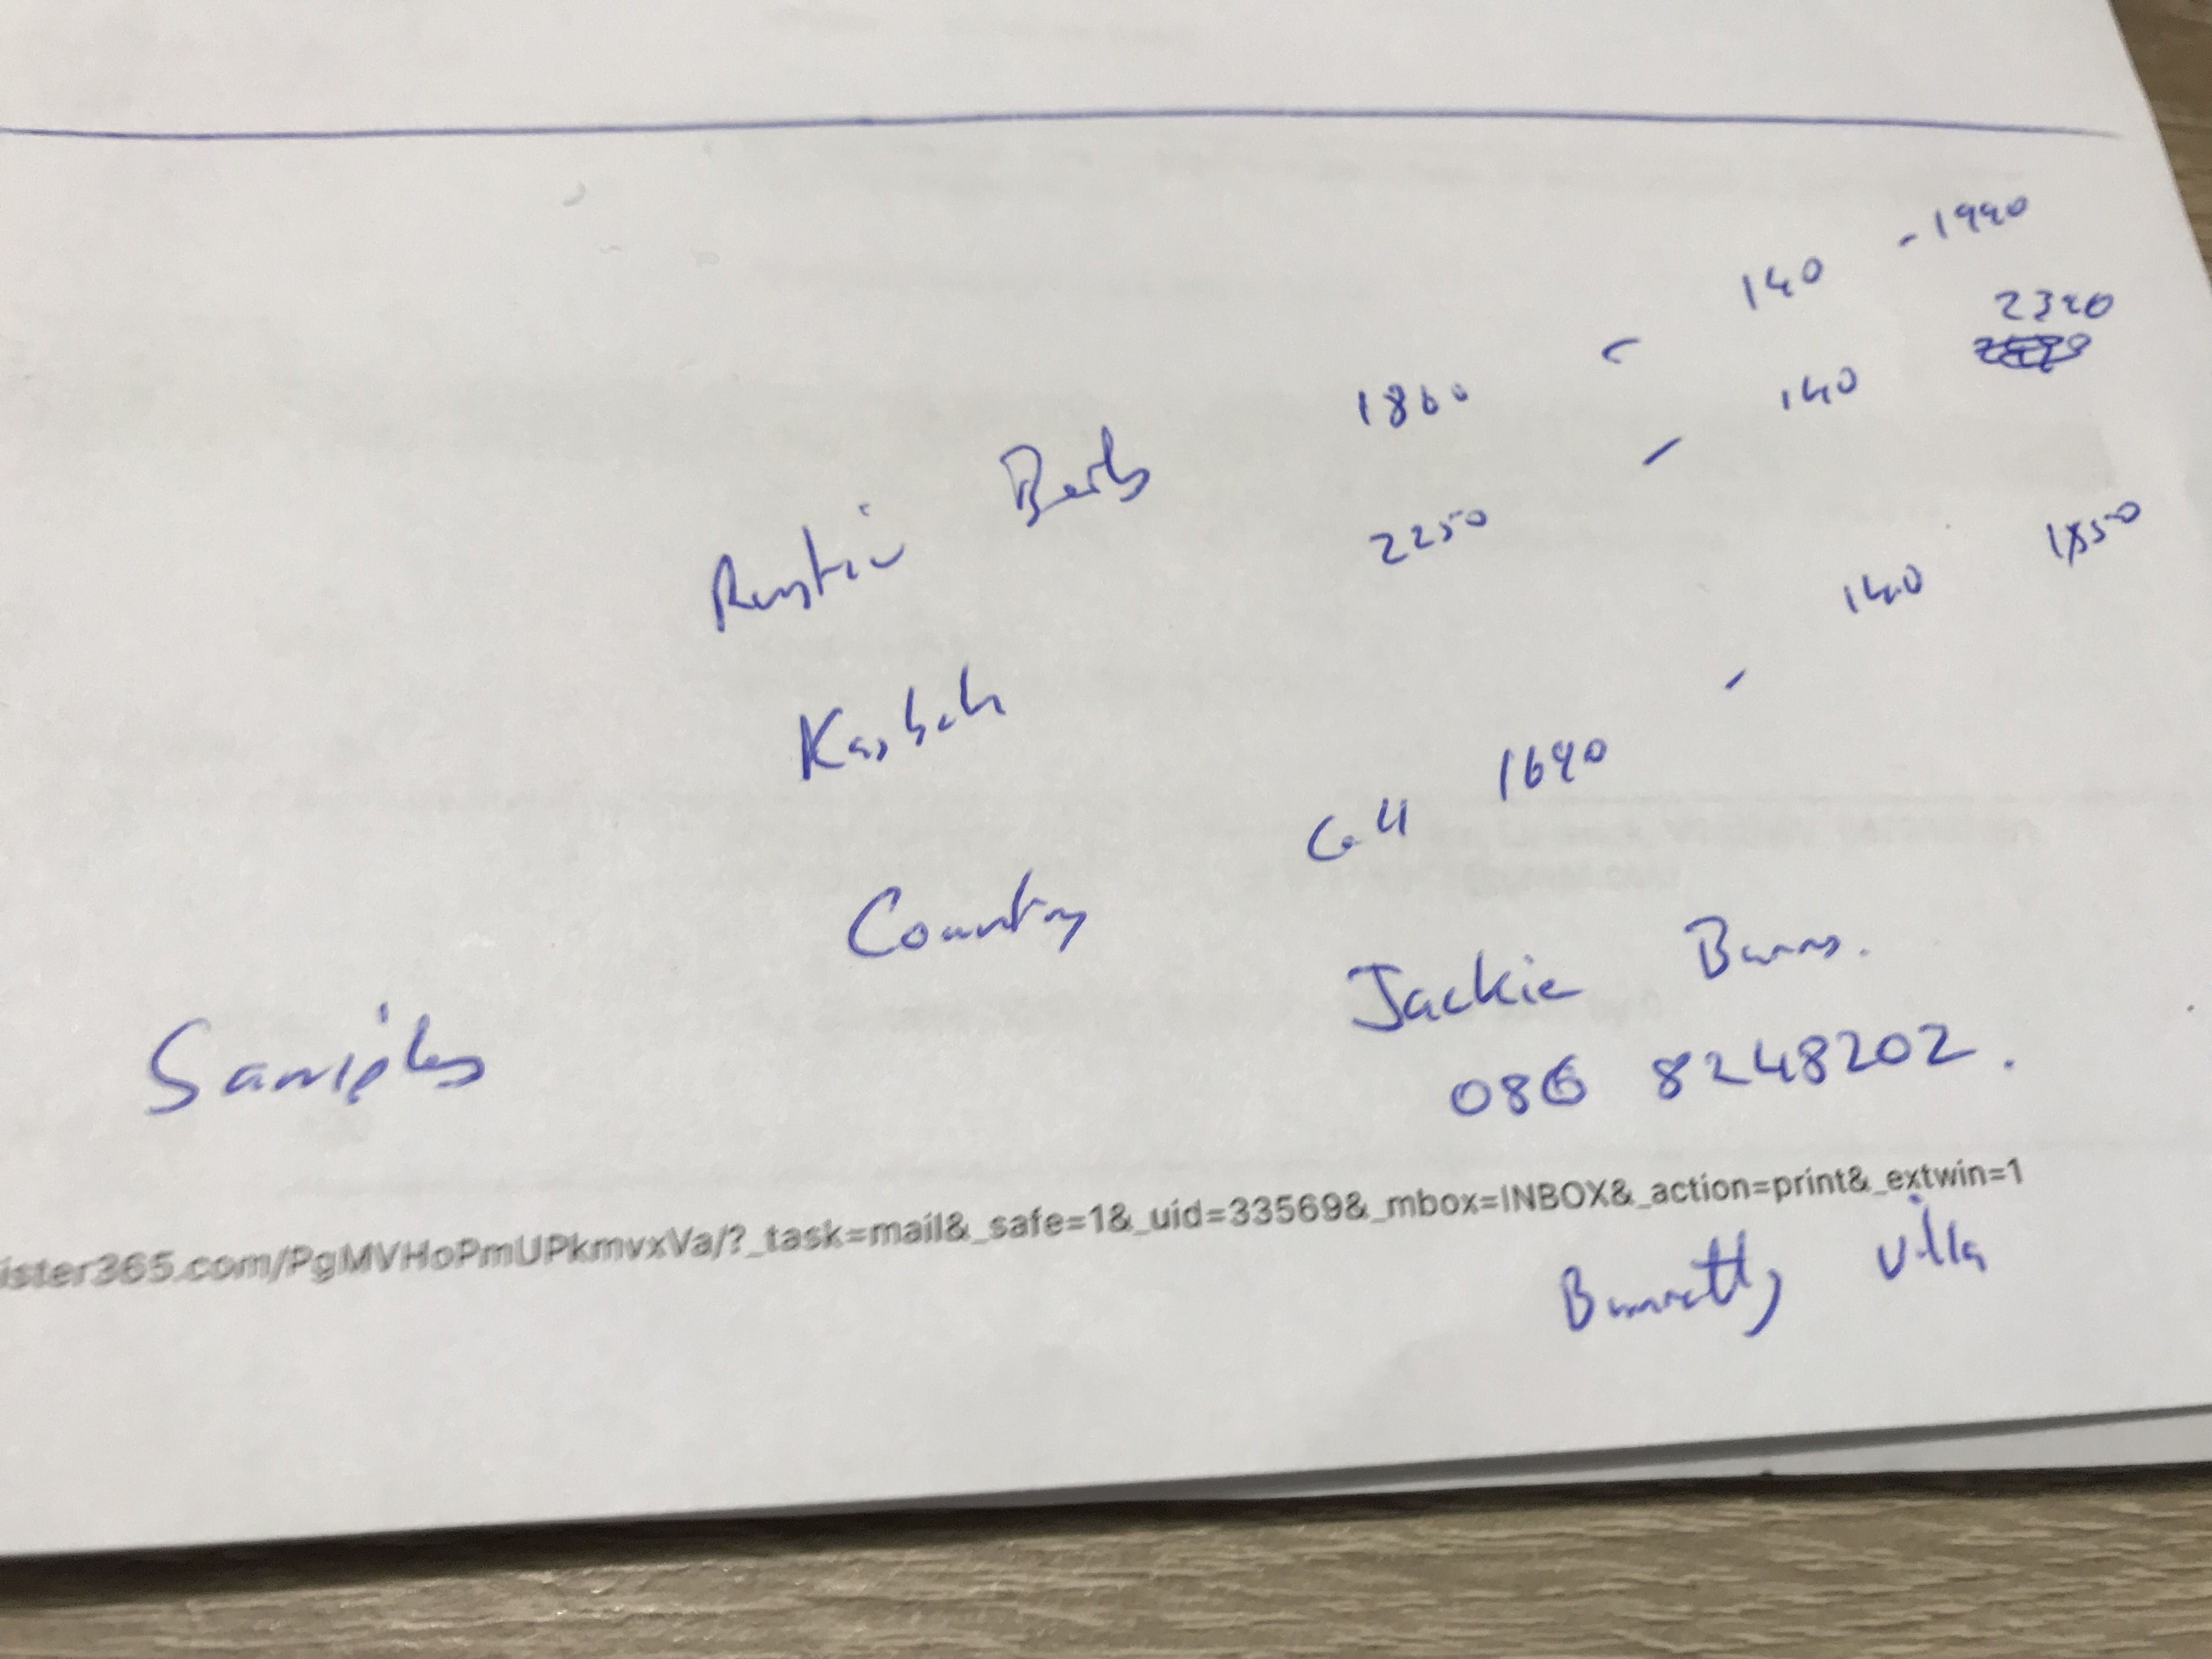 Rustic Berb 1860 - 140 - 1990
Kasbah 2250 - 140 2320
Country 1690 - 140 1850
Call
Samples
Jackie Burns.
086 8248202.
ister365.com/PgMVHoPmUPkmvxVa/?_task=mail&_safe=1&_uid=33569&_mbox=INBOX&_action=print&_extwin=1
villa